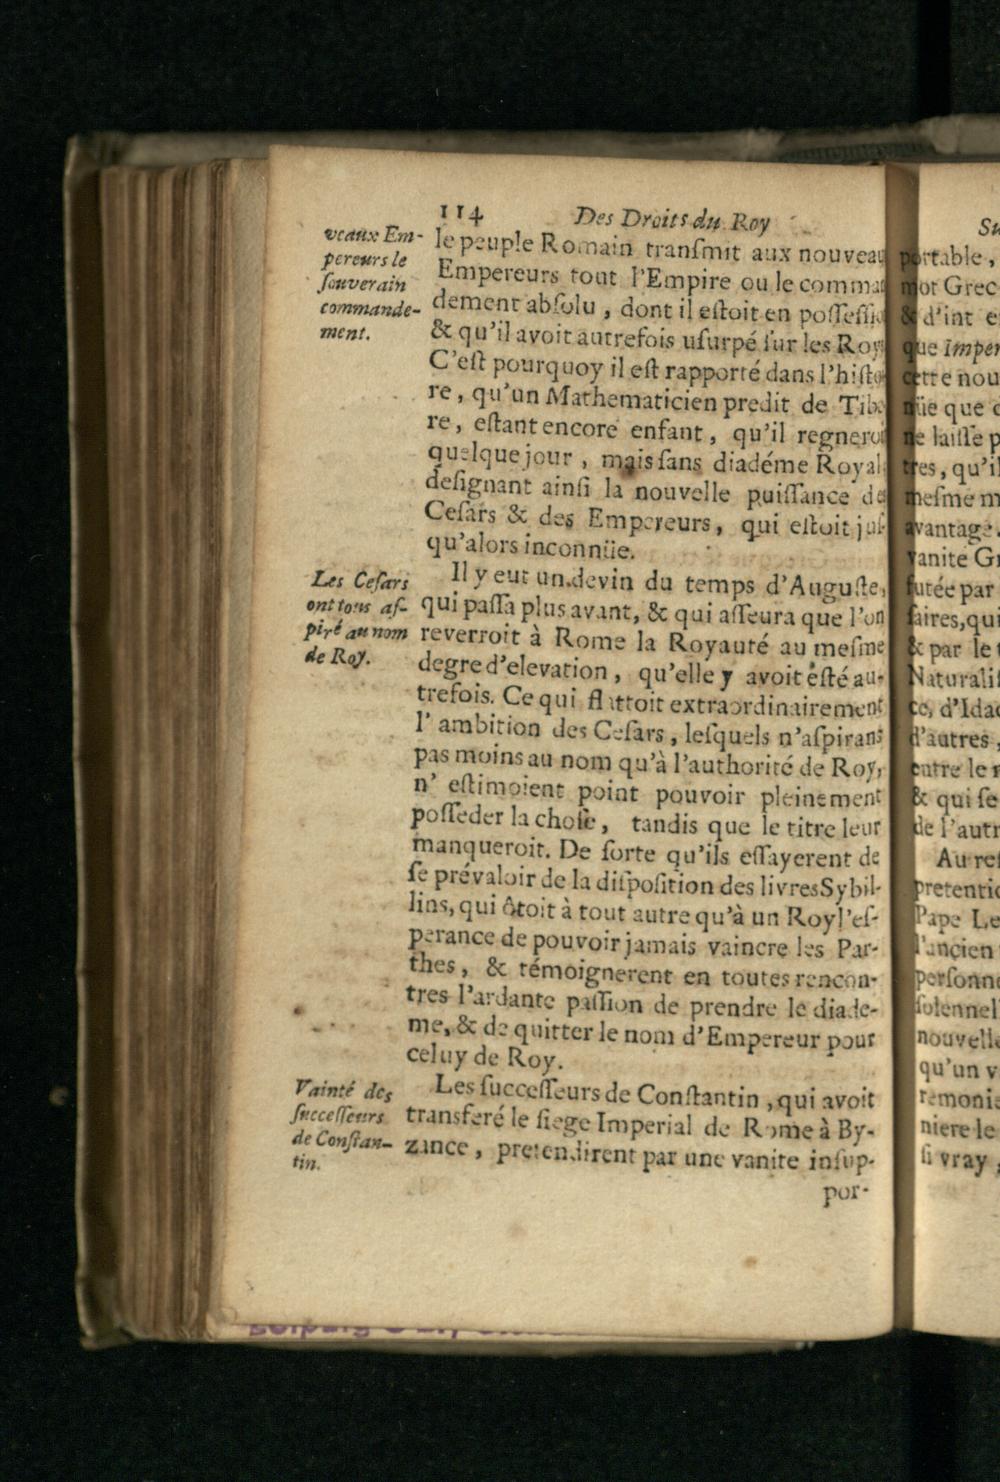 114 Des Droits du Roy
veaux Em-
pereurs le
ſouverain
commande-
ment.
le peuple Romain tranſmit aux nouveau
Empereurs tout l'Empire ou le comman
dement abſolu , dont il eſtoit en poſſeſſio
& qu'il avoit autrefois uſurpé ſur les Roy
C'eſt pourquoy il eſt rapporté dans l'hiſtoi
re, qu'un Mathematicien predit de Tibe
re, eſtant encore enfant, qu'il regneroit
quelque jour , mais ſans diadéme Royal
deſignant ainſi la nouvelle puiſſance des
Ceſars & des Empereurs, qui eſtoit juſ-
qu'alors inconnüe.
Les Ceſars
ont tous aſ-
piré au nom
de Roy.
Il y eut un devin du temps d'Auguſte,
qui paſſa plus avant, & qui aſſeura que l'on
reverroit à Rome la Royauté au meſme
degre d'elevation, qu'elle y avoit éſté au-
trefois. Ce qui flattoit extraordinairement
l'ambition des Ceſars, leſquels n'aſpirans
pas moins au nom qu'à l'authorité de Roy,
n' eſtimoient point pouvoir pleinement
poſſeder la choſe, tandis que le titre leur
manqueroit. De ſorte qu'ils eſſayerent de
ſe prévaloir de la diſpoſition des livres Sybil-
lins, qui ôtoit à tout autre qu'à un Roy l'eſ-
perance de pouvoir jamais vaincre les Par-
thes, & témoignerent en toutes rencon-
tres l'ardante paſſion de prendre le diade-
me, & de quitter le nom d'Empereur pour
celuy de Roy.
Vainté des
ſucceſſeurs
de Conſtan-
tin.
Les ſucceſſeurs de Conſtantin, qui avoit
transferé le ſiege Imperial de Rome à By-
zance, pretendirent par une vanite inſup-
por-
Su
portable,
mot Grec
& d'int e
que Imper
cette nou
nüe que
ne laiſſe p
tres, qu'il
meſme m
avantage.
vanite Gr
futée par
faires, qui
& par le t
Naturaliſ
ce, d'Idac
d'autres,
entre le r
& qui ſe
de l'autr
Au reſ
pretentio
Pape Le
l'ancien
perſonne
ſolennel
nouvelle
qu'un v
remonie
niere le
ſi vray,